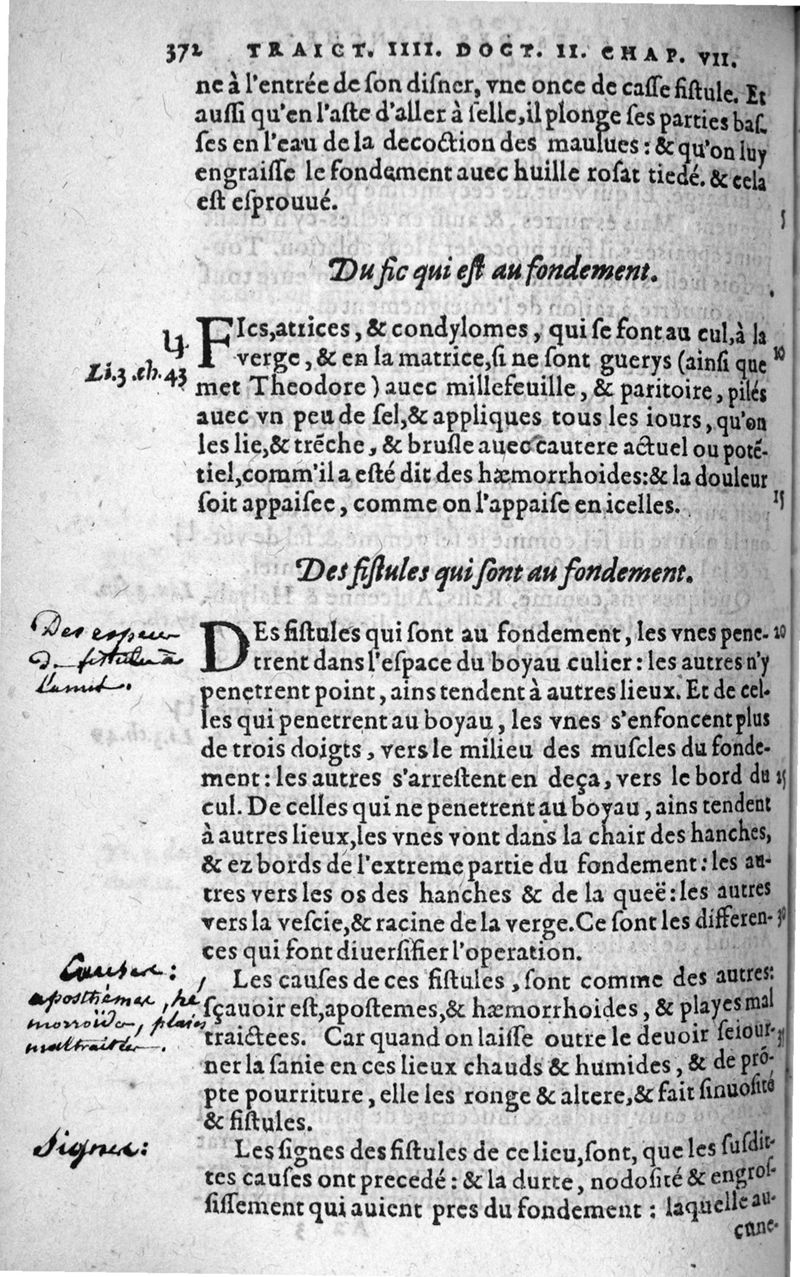 372 TRAICT. IIII. DOCT. II. CHAP. VII.
ne à l'entrée de ſon diſner, vne once de caſſe fiſtule. Et
auſſi qu'en l'aſte d'aller à ſelle, il plonge ſes parties baſ-
ſes en l'eau de la decoction des maulues : & qu'on luy
engraiſſe le fondement auec huille roſat tiedé. & cela
eſt eſprouué.
5
Du fic qui eſt au fondement.
FIcs, attices, & condylomes, qui ſe font au cul, à la
verge, & en la matrice, ſi ne ſont guerys (ainſi que
10
Li.3.ch.43
met Theodore) auec millefeuille, & paritoire, pilés
auec vn peu de ſel, & appliques tous les iours, qu'on
les lie, & trẽche, & bruſle auec cautere actuel ou potẽ-
tiel, comm'il a eſté dit des hæmorrhoides: & la douleur
ſoit appaiſee, comme on l'appaiſe en icelles.
15
Des fiſtules qui ſont au fondement.
DEs fiſtules qui ſont au fondement, les vnes pene-
20
trent dans l'eſpace du boyau culier : les autres n'y
penetrent point, ains tendent à autres lieux. Et de cel-
les qui penetrent au boyau, les vnes s'enfoncent plus
de trois doigts, vers le milieu des muſcles du fonde-
ment : les autres s'arreſtent en deça, vers le bord du
25
cul. De celles qui ne penetrent au boyau, ains tendent
à autres lieux, les vnes vont dans la chair des hanches,
& ez bords de l'extreme partie du fondement : les au-
tres vers les os des hanches & de la queë : les autres
vers la veſcie, & racine de la verge. Ce ſont les differen-
30
ces qui font diuerſifier l'operation.
Causes :
Les cauſes de ces fiſtules, ſont comme des autres:
aposthemes, he
ſçauoir eſt, apoſtemes, & hæmorrhoides, & playes mal
morroides, plaies
traictees. Car quand on laiſſe outre le deuoir ſeiour-
mal traitées.
ner la ſanie en ces lieux chauds & humides, & de pro-
pte pourriture, elle les ronge & altere, & fait ſinuoſité
& fiſtules.
Signes :
Les ſignes des fiſtules de ce lieu, ſont, que les ſuſdit-
tes cauſes ont precedé : & la durte, nodoſité & engroſ-
ſiſſement qui auient pres du fondement : laquelle au-
cune-